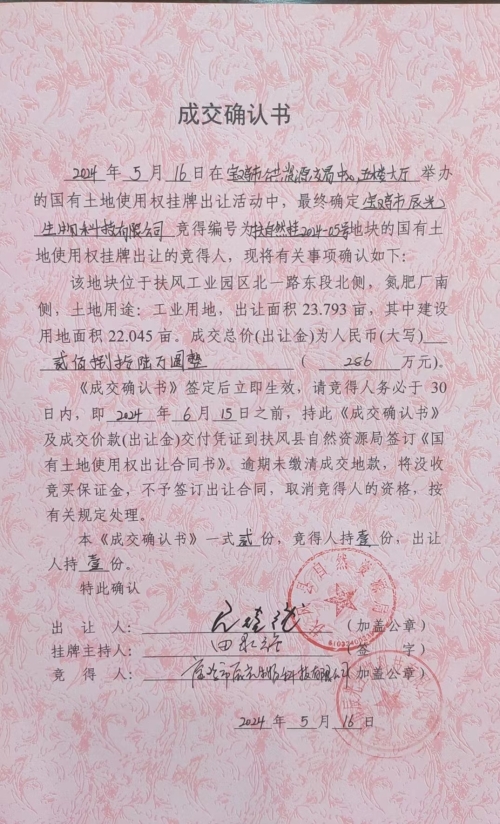 成交确认书
2024 年 5 月 16 日在宝鸡市公共资源交易中心五楼大厅 举办
的国有土地使用权挂牌出让活动中，最终确定 宝鸡市辰光
生物科技有限公司 竞得编号为扶自然挂2024-05号地块的国有土
地使用权挂牌出让的竞得人，现将有关事项确认如下：
该地块位于扶风工业园区北一路东段北侧，氮肥厂南
侧，土地用途：工业用地，出让面积 23.793 亩，其中建设
用地面积 22.045 亩。成交总价(出让金)为人民币(大写)
贰佰捌拾陆万圆整 （ 286 万元）。
《成交确认书》签定后立即生效，请竞得人务必于 30
日内，即 2024 年 6 月 15 日之前，持此《成交确认书》
及成交价款(出让金)交付凭证到扶风县自然资源局签订《国
有土地使用权出让合同书》。逾期未缴清成交地款，将没收
竞买保证金，不予签订出让合同，取消竞得人的资格，按
有关规定处理。
本《成交确认书》一式贰份，竞得人持壹份，出让
人持 壹 份。
特此确认
出 让 人： （加盖公章）
挂牌主持人： （签 字）
竞 得 人： 宝鸡市辰光生物科技有限公司 （加盖公章）
2024 年 5 月 16 日
扶风县自然资源局